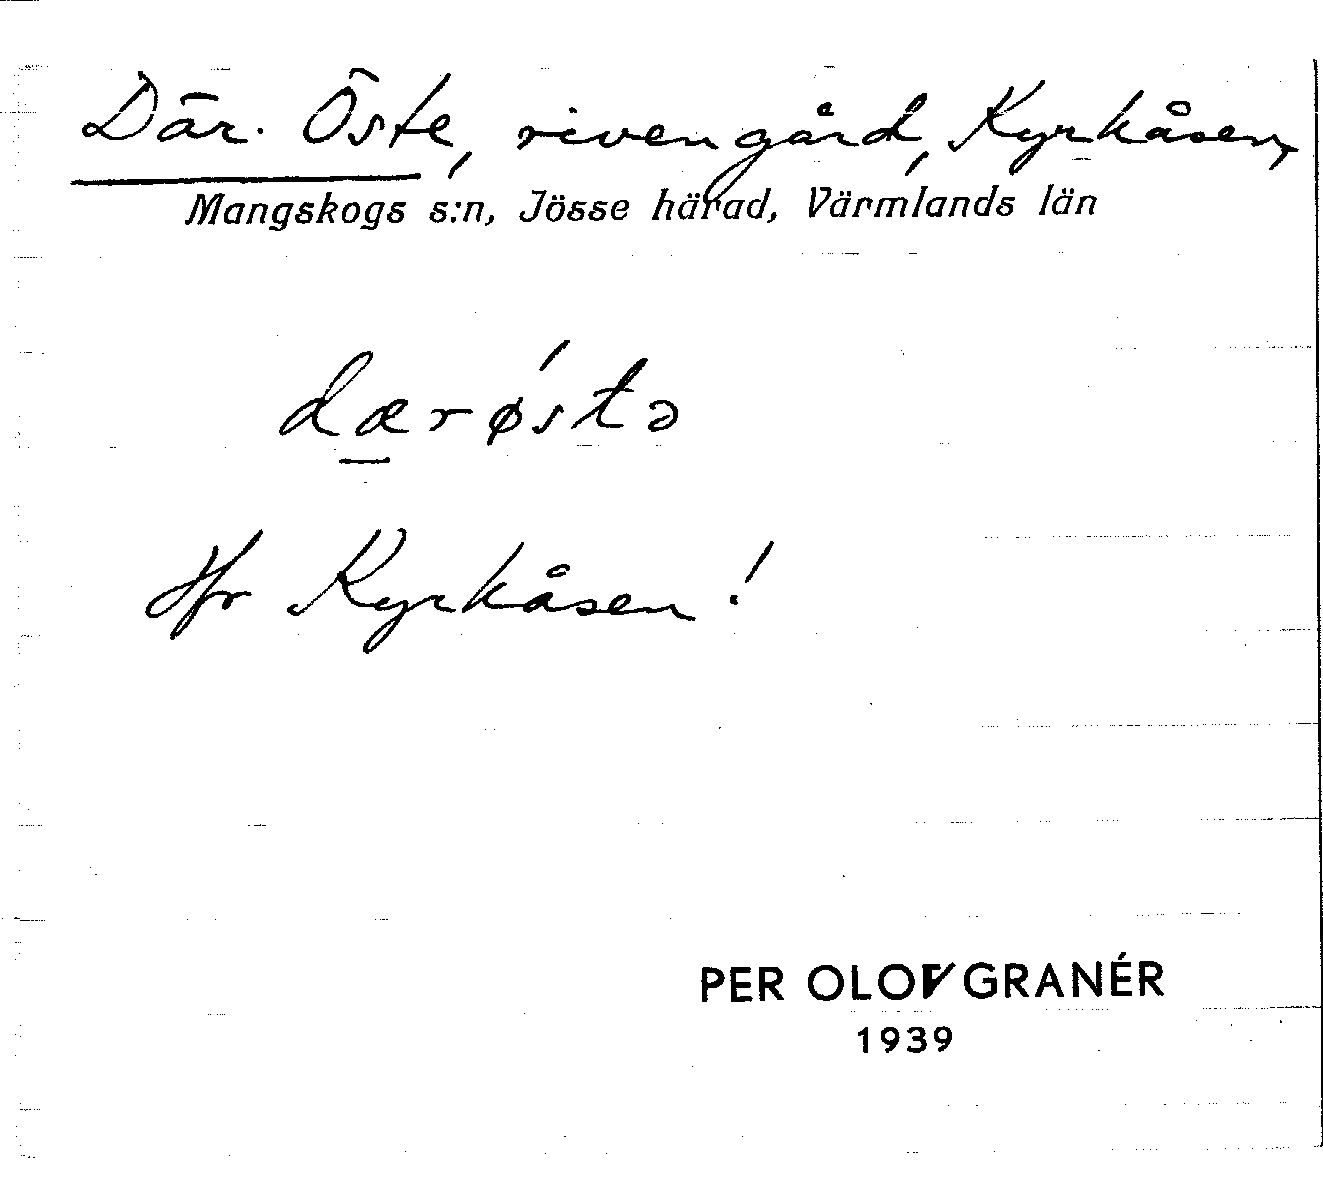 Där. Öste, riven gård, Kyrkåsen,
Mangskogs s:n, Jösse härad, Värmlands län
dærǿstə
Hfr Kyrkåsen!
PER OLOV GRANÉR
1939